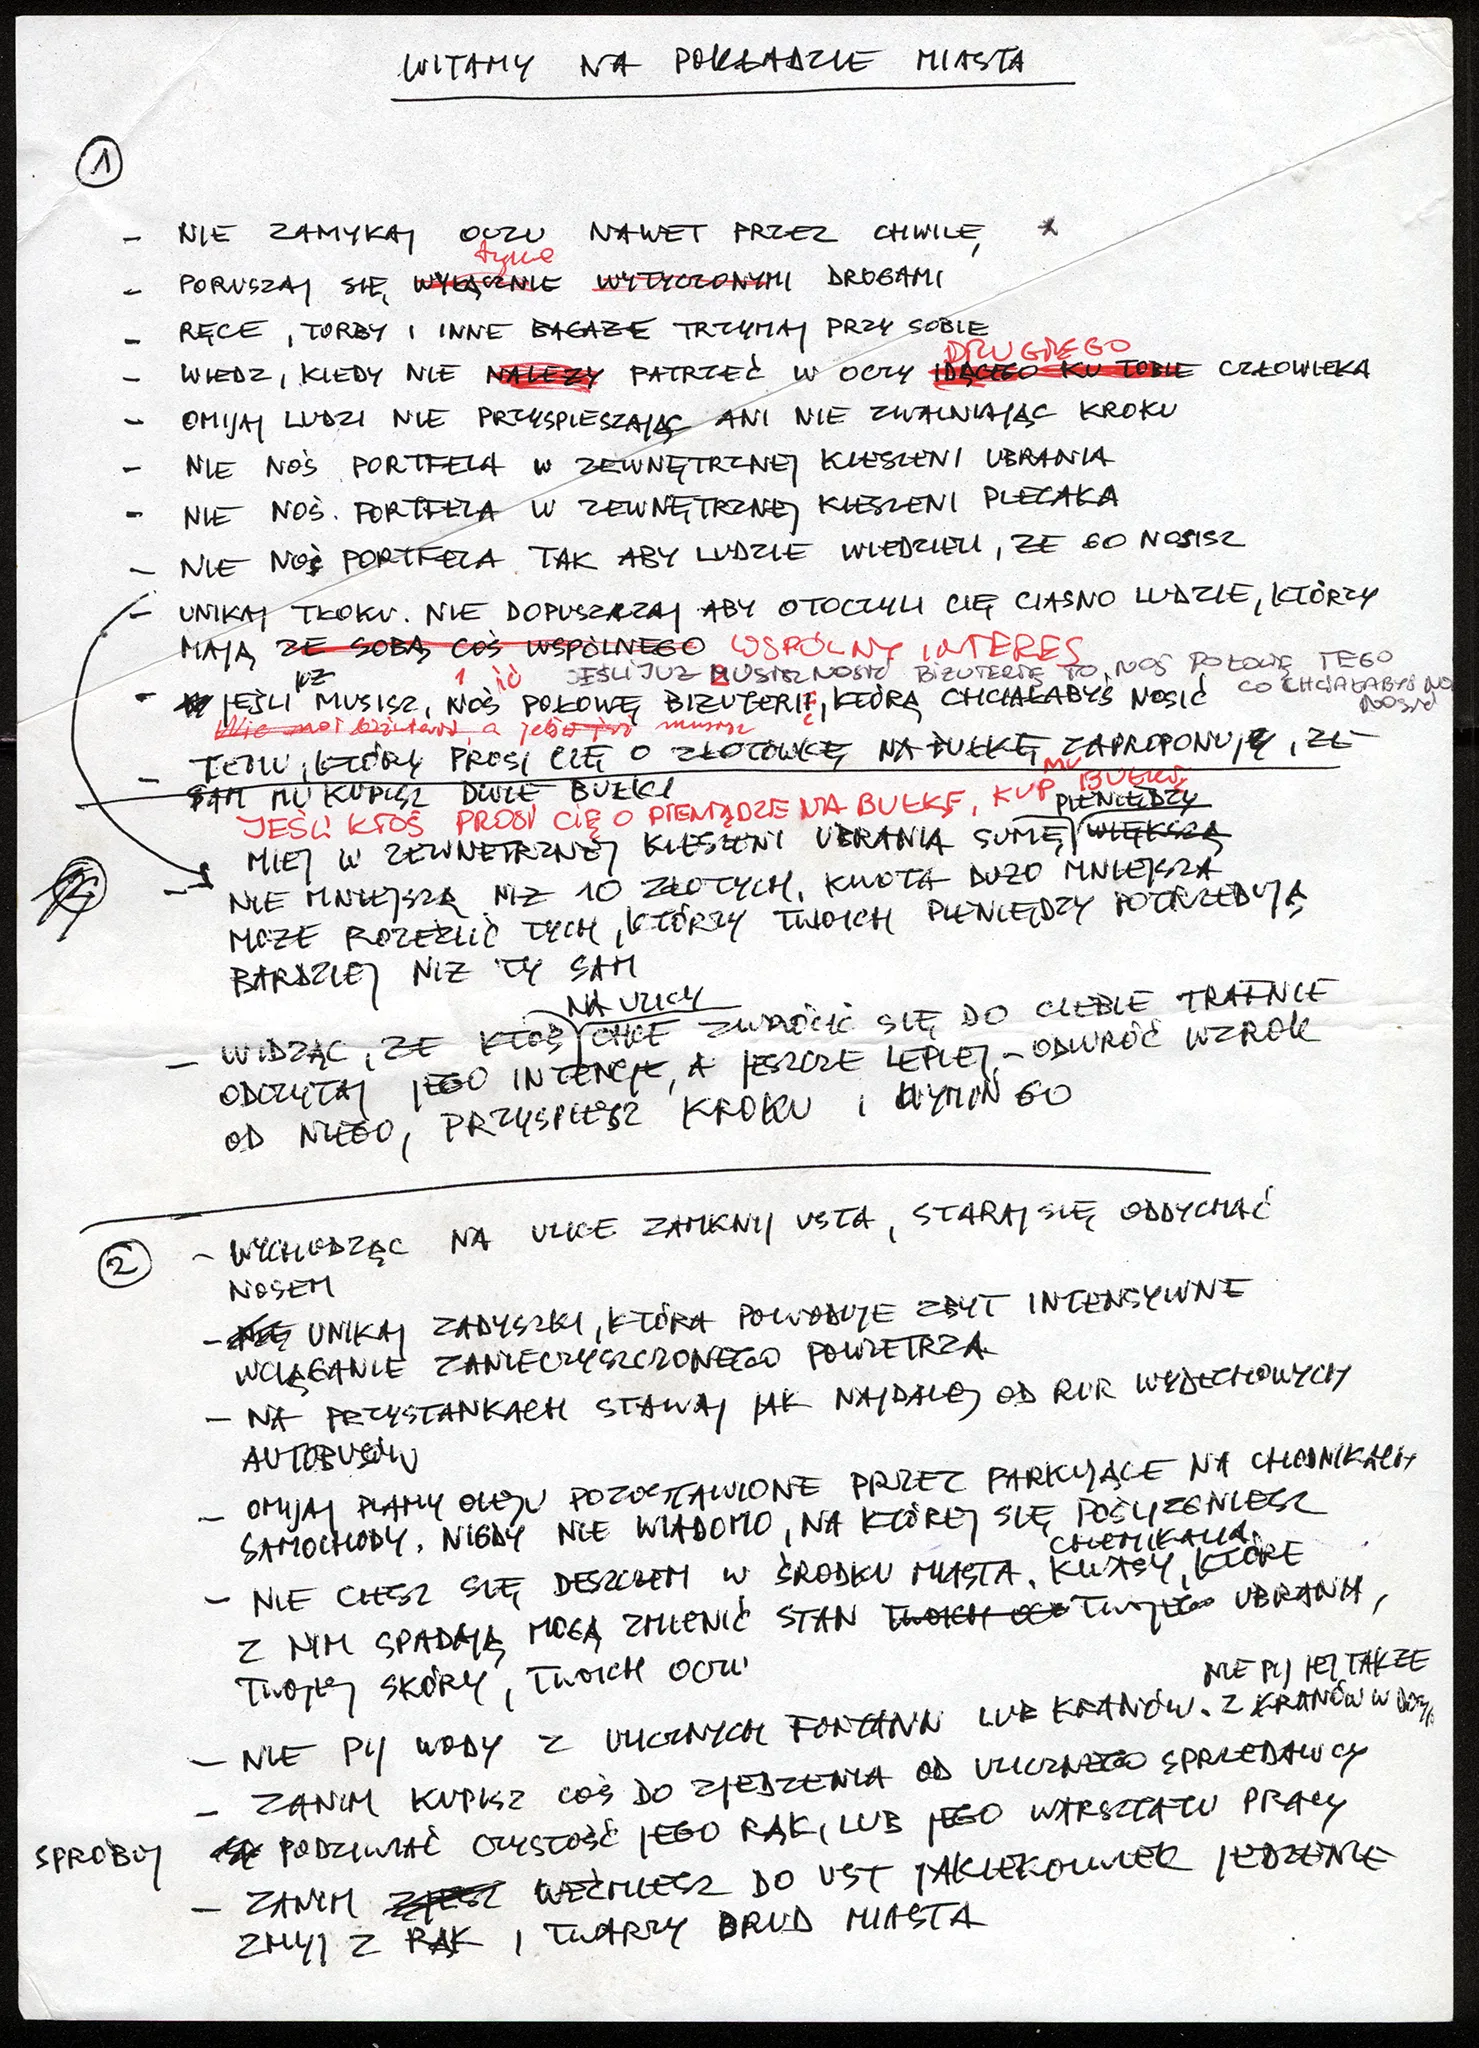 WITAMY NA POKŁADZIE MIASTA
1
- NIE ZAMYKAJ OCZU NAWET PRZEZ CHWILĘ
tymi
- PORUSZAJ SIĘ WYŁĄCZNIE WYTYCZONYMI DROGAMI
- RĘCE, TORBY I INNE BAGAŻE TRZYMAJ PRZY SOBIE
DRUGIEGO
- WIEDZ, KIEDY NIE NALEŻY PATRZEĆ W OCZY IDĄCEGO KU TOBIE CZŁOWIEKA
- OMIJAJ LUDZI NIE PRZYSPIESZAJĄC ANI NIE ZWALNIAJĄC KROKU
- NIE NOŚ PORTFELA W ZEWNĘTRZNEJ KIESZENI UBRANIA
- NIE NOŚ PORTFELA W ZEWNĘTRZNEJ KIESZENI PLECAKA
- NIE NOŚ PORTFELA TAK ABY LUDZIE WIEDZIELI, ŻE GO NOSISZ
- UNIKAJ TŁOKU. NIE DOPUSZCZAJ ABY OTOCZYLI CIĘ CIASNO LUDZIE, KTÓRZY
MAJĄ ZE SOBĄ COŚ WSPÓLNEGO WSPÓLNY INTERES
JEŚLI JUŻ MUSISZ NOSIĆ BIŻUTERIĘ TO NOŚ POŁOWĘ TEGO
CO CHCIAŁABYŚ
NOSIĆ
- JEŚLI MUSISZ, NOŚ POŁOWĘ BIŻUTERII, KTÓRĄ CHCIAŁABYŚ NOSIĆ
Nie noś biżuterii, a jeśli już musisz
- TEMU, KTÓRY PROSI CIĘ O ZŁOTÓWKĘ NA BUŁKĘ ZAPROPONUJ, ŻE
SAM MU KUPISZ DWIE BUŁKI
JEŚLI KTOŚ PROSI CIĘ O PIENIĄDZE NA BUŁKĘ, KUP MU BUŁKĘ
PIENIĘDZY
- MIEJ W ZEWNĘTRZNEJ KIESZENI UBRANIA SUMĘ WIĘKSZĄ
NIE MNIEJSZĄ NIŻ 10 ZŁOTYCH. KWOTA DUŻO MNIEJSZA
MOŻE ROZEŹLIĆ TYCH, KTÓRZY TWOICH PIENIĘDZY POTRZEBUJĄ
BARDZIEJ NIŻ TY SAM
NA ULICY
- WIDZĄC, ŻE KTOŚ CHCE ZWRÓCIĆ SIĘ DO CIEBIE TRAFNIE
ODCZYTAJ JEGO INTENCJE, A JESZCZE LEPIEJ - ODWRÓĆ WZROK
OD NIEGO, PRZYSPIESZ KROKU I WYMIŃ GO
2
- WYCHODZĄC NA ULICE ZAMKNIJ USTA, STARAJ SIĘ ODDYCHAĆ
NOSEM
- UNIKAJ ZADYSZKI, KTÓRA POWODUJE ZBYT INTENSYWNE
WCIĄGANIE ZANIECZYSZCZONEGO POWIETRZA
- NA PRZYSTANKACH STAWAJ JAK NAJDALEJ OD RUR WYDECHOWYCH
AUTOBUSÓW
- OMIJAJ PLAMY OLEJU POZOSTAWIONE PRZEZ PARKUJĄCE NA CHODNIKACH
SAMOCHODY. NIGDY NIE WIADOMO, NA KTÓREJ SIĘ POŚLIZGNIESZ
CHEMIKALIA
- NIE CIESZ SIĘ DESZCZEM W ŚRODKU MIASTA. KWASY, KTÓRE
Z NIM SPADAJĄ MOGĄ ZMIENIĆ STAN TWOICH OCZ TWOJEGO UBRANIA,
TWOJEJ SKÓRY, TWOICH OCZU
NIE PIJ JEJ TAKŻE
- NIE PIJ WODY Z ULICZNYCH FONTANN LUB KRANÓW. Z KRANÓW W
- ZANIM KUPISZ COŚ DO ZJEDZENIA OD ULICZNEGO SPRZEDAWCY
SPRÓBUJ PODZIWIAĆ CZYSTOŚĆ JEGO RĄK, LUB JEGO WARSZTATU PRACY
- ZANIM ZJESZ WEŹMIESZ DO UST JAKIEKOLWIEK JEDZENIE
ZMYJ Z RĄK I TWARZY BRUD MIASTA